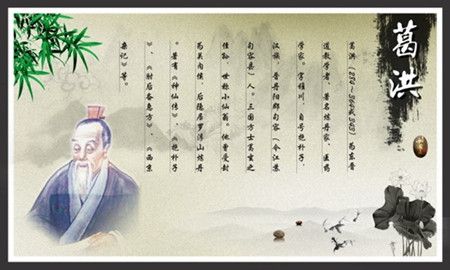 葛洪
葛洪（284～364或343）为东晋
道教学者、著名炼丹家、医药
学家。字稚川，自号抱朴子，
汉族，晋丹阳郡句容（今江苏
句容县）人。三国方士葛玄之
侄孙，世称小仙翁。他曾受封
为关内侯，后隐居罗浮山炼丹
。著有《神仙传》、《抱朴子
》、《肘后备急方》、《西京
杂记》等。